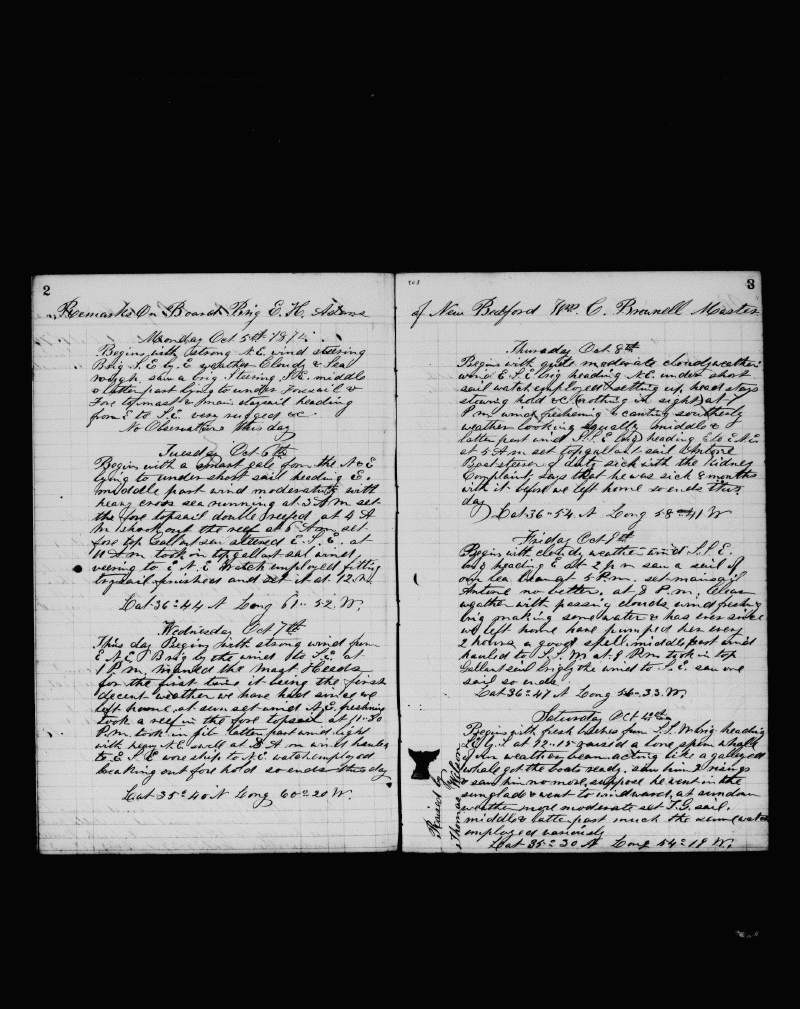 2
Remarks On Board Brig E. H. Adams
Monday Oct 5th 1874
Begins with strong N.E. wind steering
Brig S.E. by E weather Cloudy & Sea
rough saw a brig steering middle
& latter part lying to under Foresail &
Fore topmast & main staysail heading
from E to S.E. very rugged &c
No Observation this day
Tuesday Oct 6th
Begins with a smart gale from the N & E
lying to under short sail heading E.
middle part wind moderating with
heavy cross sea running at 3 A m set
the fore topsail double reefed at 4 A
m shook out the reef at 5 A m set
fore top Gallant sail steered E.S.E. at
11 A m took in topgallant sail wind
veering to E N. E Watch employed fitting
trysail finished and set it at 12 m
Lat 36 = 44 N Long 61 = 52 W.
Wednesday Oct 7th
This day Begins with strong wind from
E N. E Brig by the wind to S.E. at
1 P.m. manned the Mast Heads
for the first time it being the first
decent weather we have had since we
left home at sun set wind N.E. freshning
took a reef in the fore topsail at 11-30
P.m. took in jib latter part wind light
with heavy N.E swell at A m wind hauled
to E.S.E wore ship to N.E. watch employed
breaking out fore hold so ends this day
Lat 35 = 40 N Long 60 = 20 W.
3
of New Bedford Wm. C. Brownell Master
Thursday Oct. 8th
Begins with quite moderate cloudy weather
wind E.S.E brig heading N.E. under short
sail watch employed setting up head stays
stowing hold &c (nothing in sight) at 7
P.m. wind freshening & canting southerly
weather looking squally middle &
latter part wind S.S.E brig heading E to E N E
at 5 A m set topgallant sail Antone
Boatsteerer off duty sick with the Kidney
Complaint says that he was sick 8 months
with it before we left home so ends this
day
Lat 36 = 54 N Long 58 = 41 W
Friday Oct 9th
Begins with cloudy weather wind S.S.E.
brig heading E at 2 p m saw a sail off
our lea beam at 5 P.m. set mainsail
Antone no better, at 8 P.m. Clear
weather with passing clouds wind freshning
brig making some water & has ever since
we left home have pumped her every
2 hours a good spell middle part wind
hauled to S.S.W. at 8 P.m. took in top
Gallant sail brig by the wind to S.E. saw one
sail so ends
Lat 36 = 47 N Long 33 W.
Saturday Oct 10th
Begins with fresh breeze from S.S.W brig heading
at 12-15 raised a lone sperm whale
off our weather beam acting like a gallied
whale got the boats ready, saw him 2 risings
& saw him no more, suppose he went in the
sunglade & went to windward, at sundown
weather more moderate set T.G. sail.
middle & latter part much the same watch
employed variously
Lat 35 = 30 N Long 54 = 19 W.
Raised by
Thomas Wilson